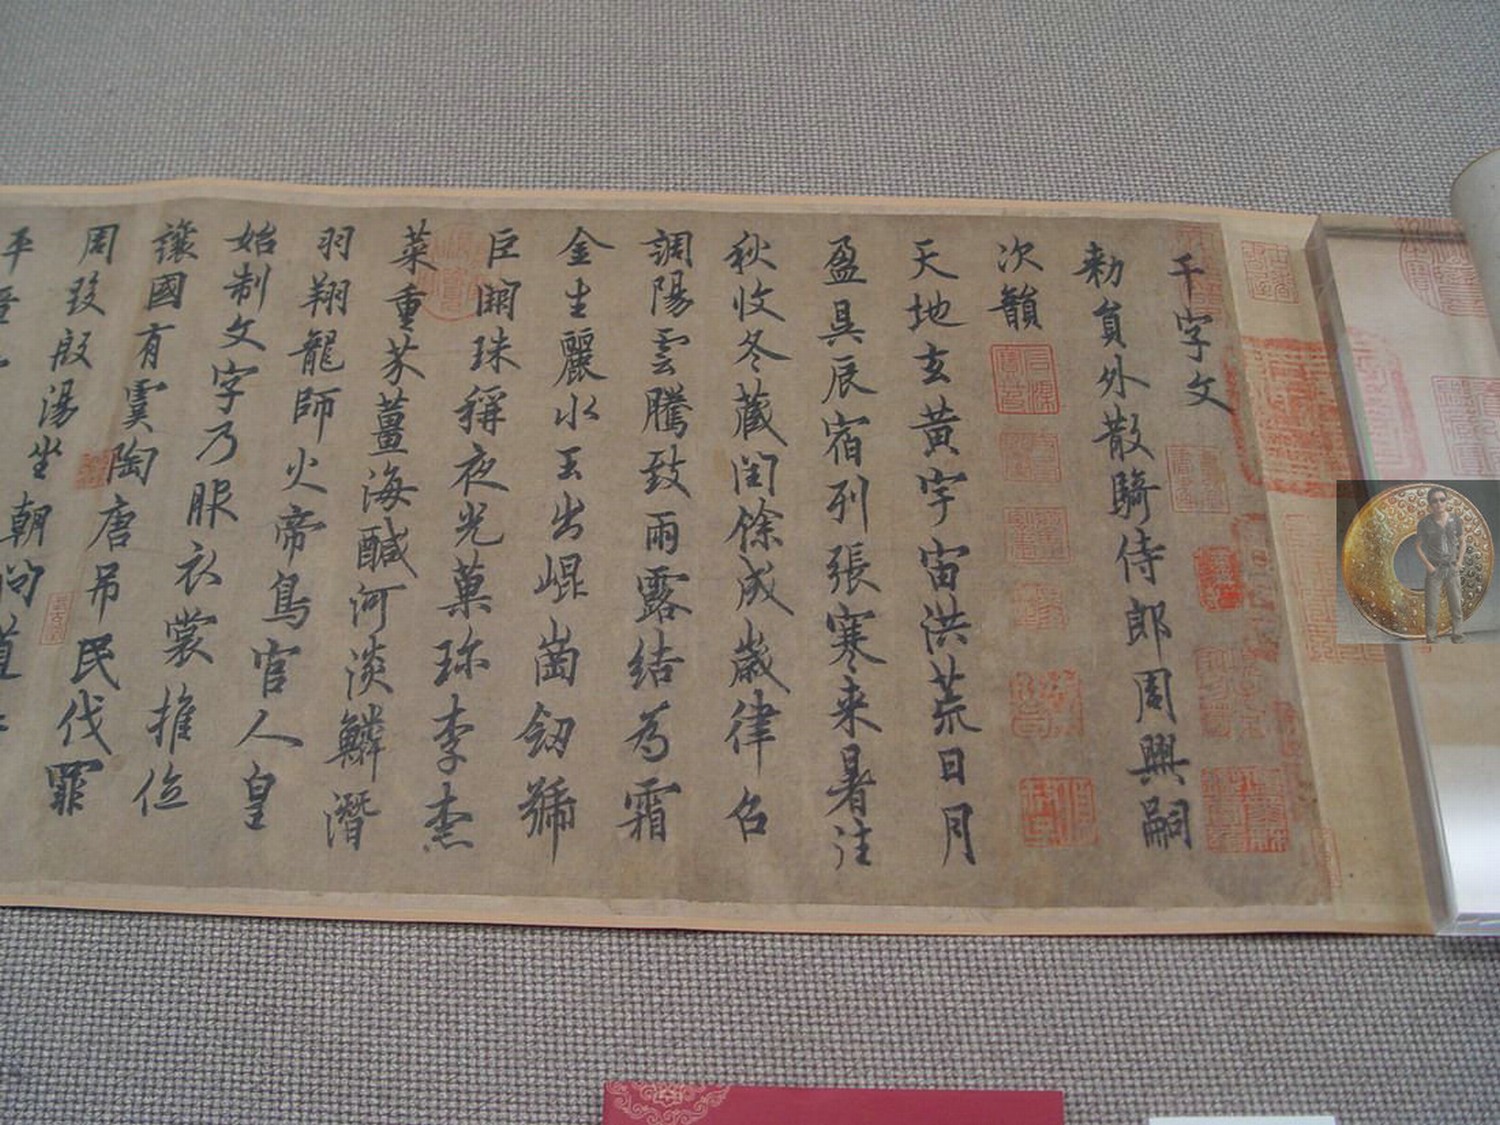 千字文
勑員外散騎侍郎周興嗣
次韻
天地玄黃宇宙洪荒日月
盈昃辰宿列張寒來暑往
秋收冬蔵閏餘成歲律召
調陽雲騰致雨露結為霜
金生麗水玉出崐崗劒號
巨闕珠稱夜光菓珎李柰
菜重芥薑海醎河淡鱗潛
羽翔龍師火帝鳥官人皇
始制文字乃服衣裳推位
讓國有虞陶唐吊民伐罪
周發殷湯坐朝問道
平